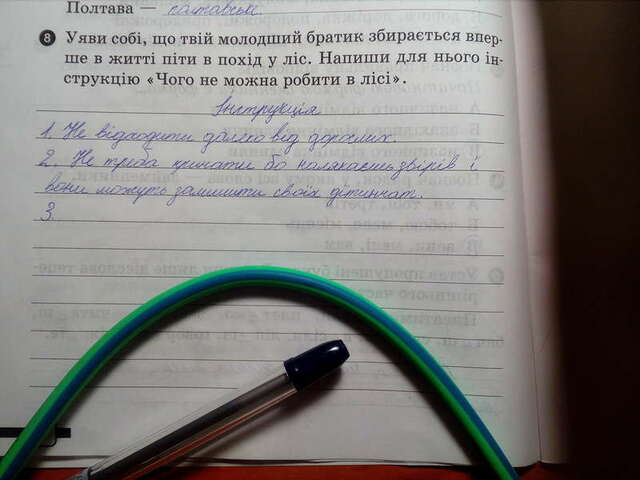 Полтава — полтавські
8 Уяви собі, що твій молодший братик збирається впер-
ше в житті піти в похід у ліс. Напиши для нього ін-
струкцію «Чого не можна робити в лісі».
Інструкція
1. Не відходити далеко від дорослих.
2. Не треба кричати бо налякаєш звірів і
вони можуть залишити своїх дитинчат.
3.